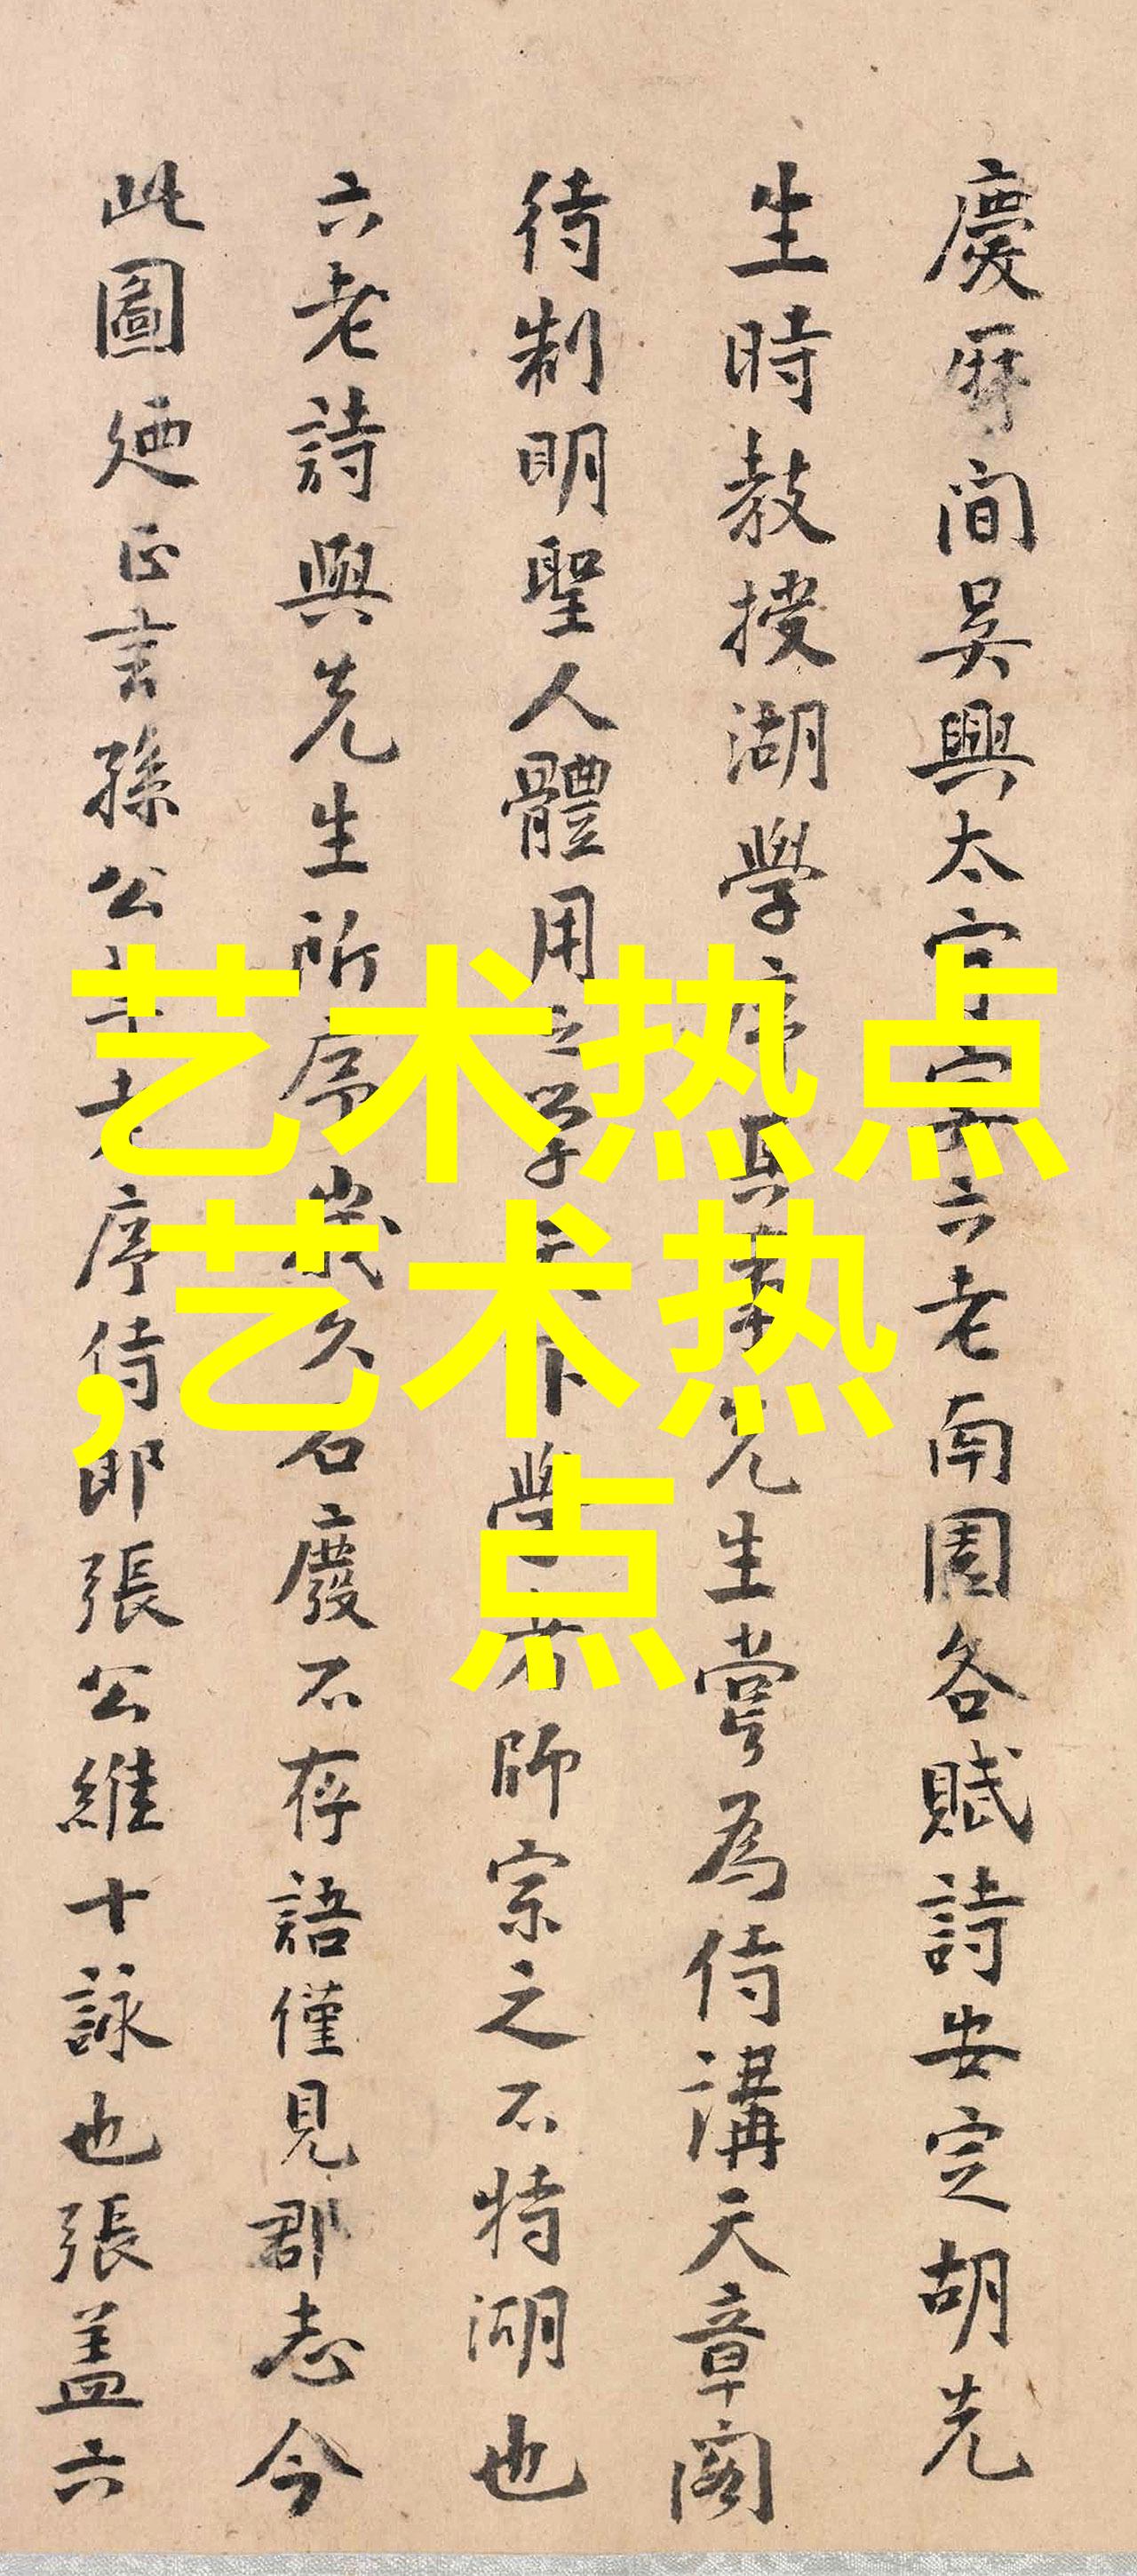 慶曆間吳興太守宴六老南園各賦詩安定胡先
生時教授湖學序其事先生嘗為侍講天章閣
待制明聖人體用之學天下學者師宗之不特湖也
六老詩與先生所序歲久石廢不存語僅見郡志今
此圖廼正言孫公莘老序侍郎張公維十詠也張蓋六
艺术热点
,艺术热
点